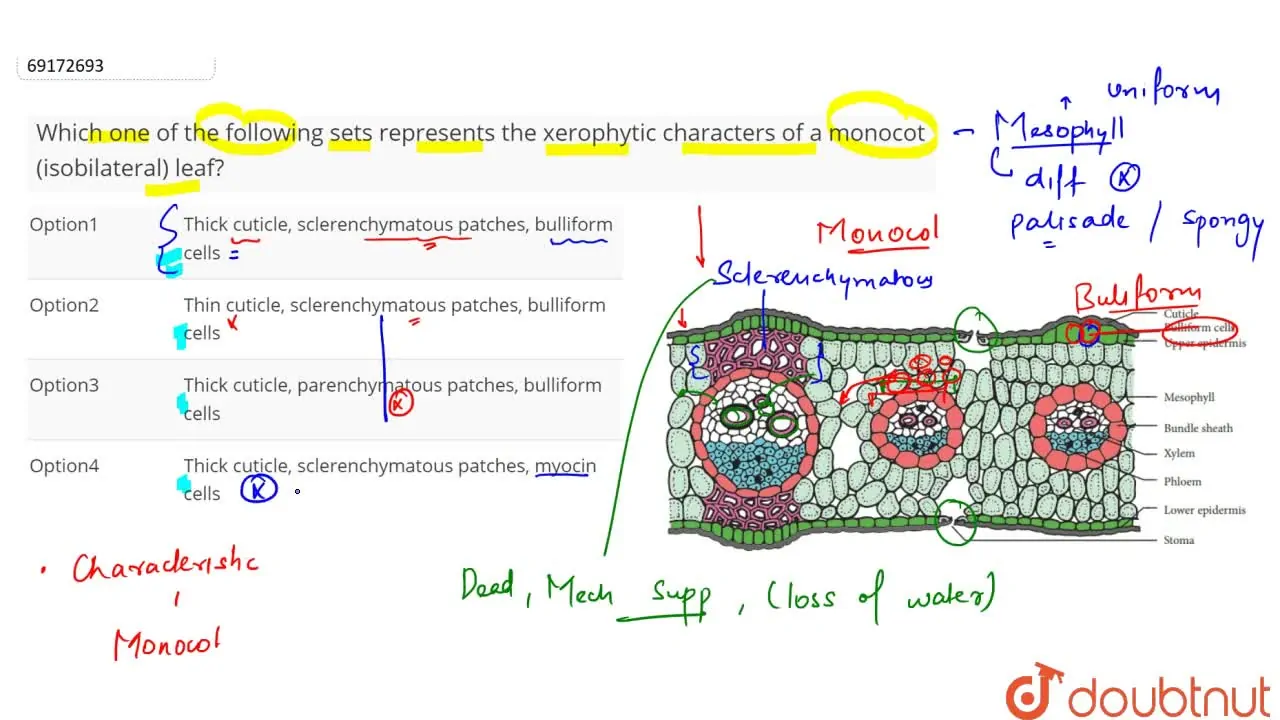 69172693
Which one of the following sets represents the xerophytic characters of a monocot
(isobilateral) leaf?
Option1
Thick cuticle, sclerenchymatous patches, bulliform
cells
Option2
Thin cuticle, sclerenchymatous patches, bulliform
cells
Option3
Thick cuticle, parenchymatous patches, bulliform
cells
Option4
Thick cuticle, sclerenchymatous patches, myocin
cells
uniform
Mesophyll
diff
palisade / spongy
Monocol
Sclerenchymatous
Buliform
Cuticle
Bulliform cells
Upper epidermis
Mesophyll
Bundle sheath
Xylem
Phloem
Lower epidermis
Stoma
Characteristic
Monocol
Dead, Mech supp, (loss of water)
doubtnut